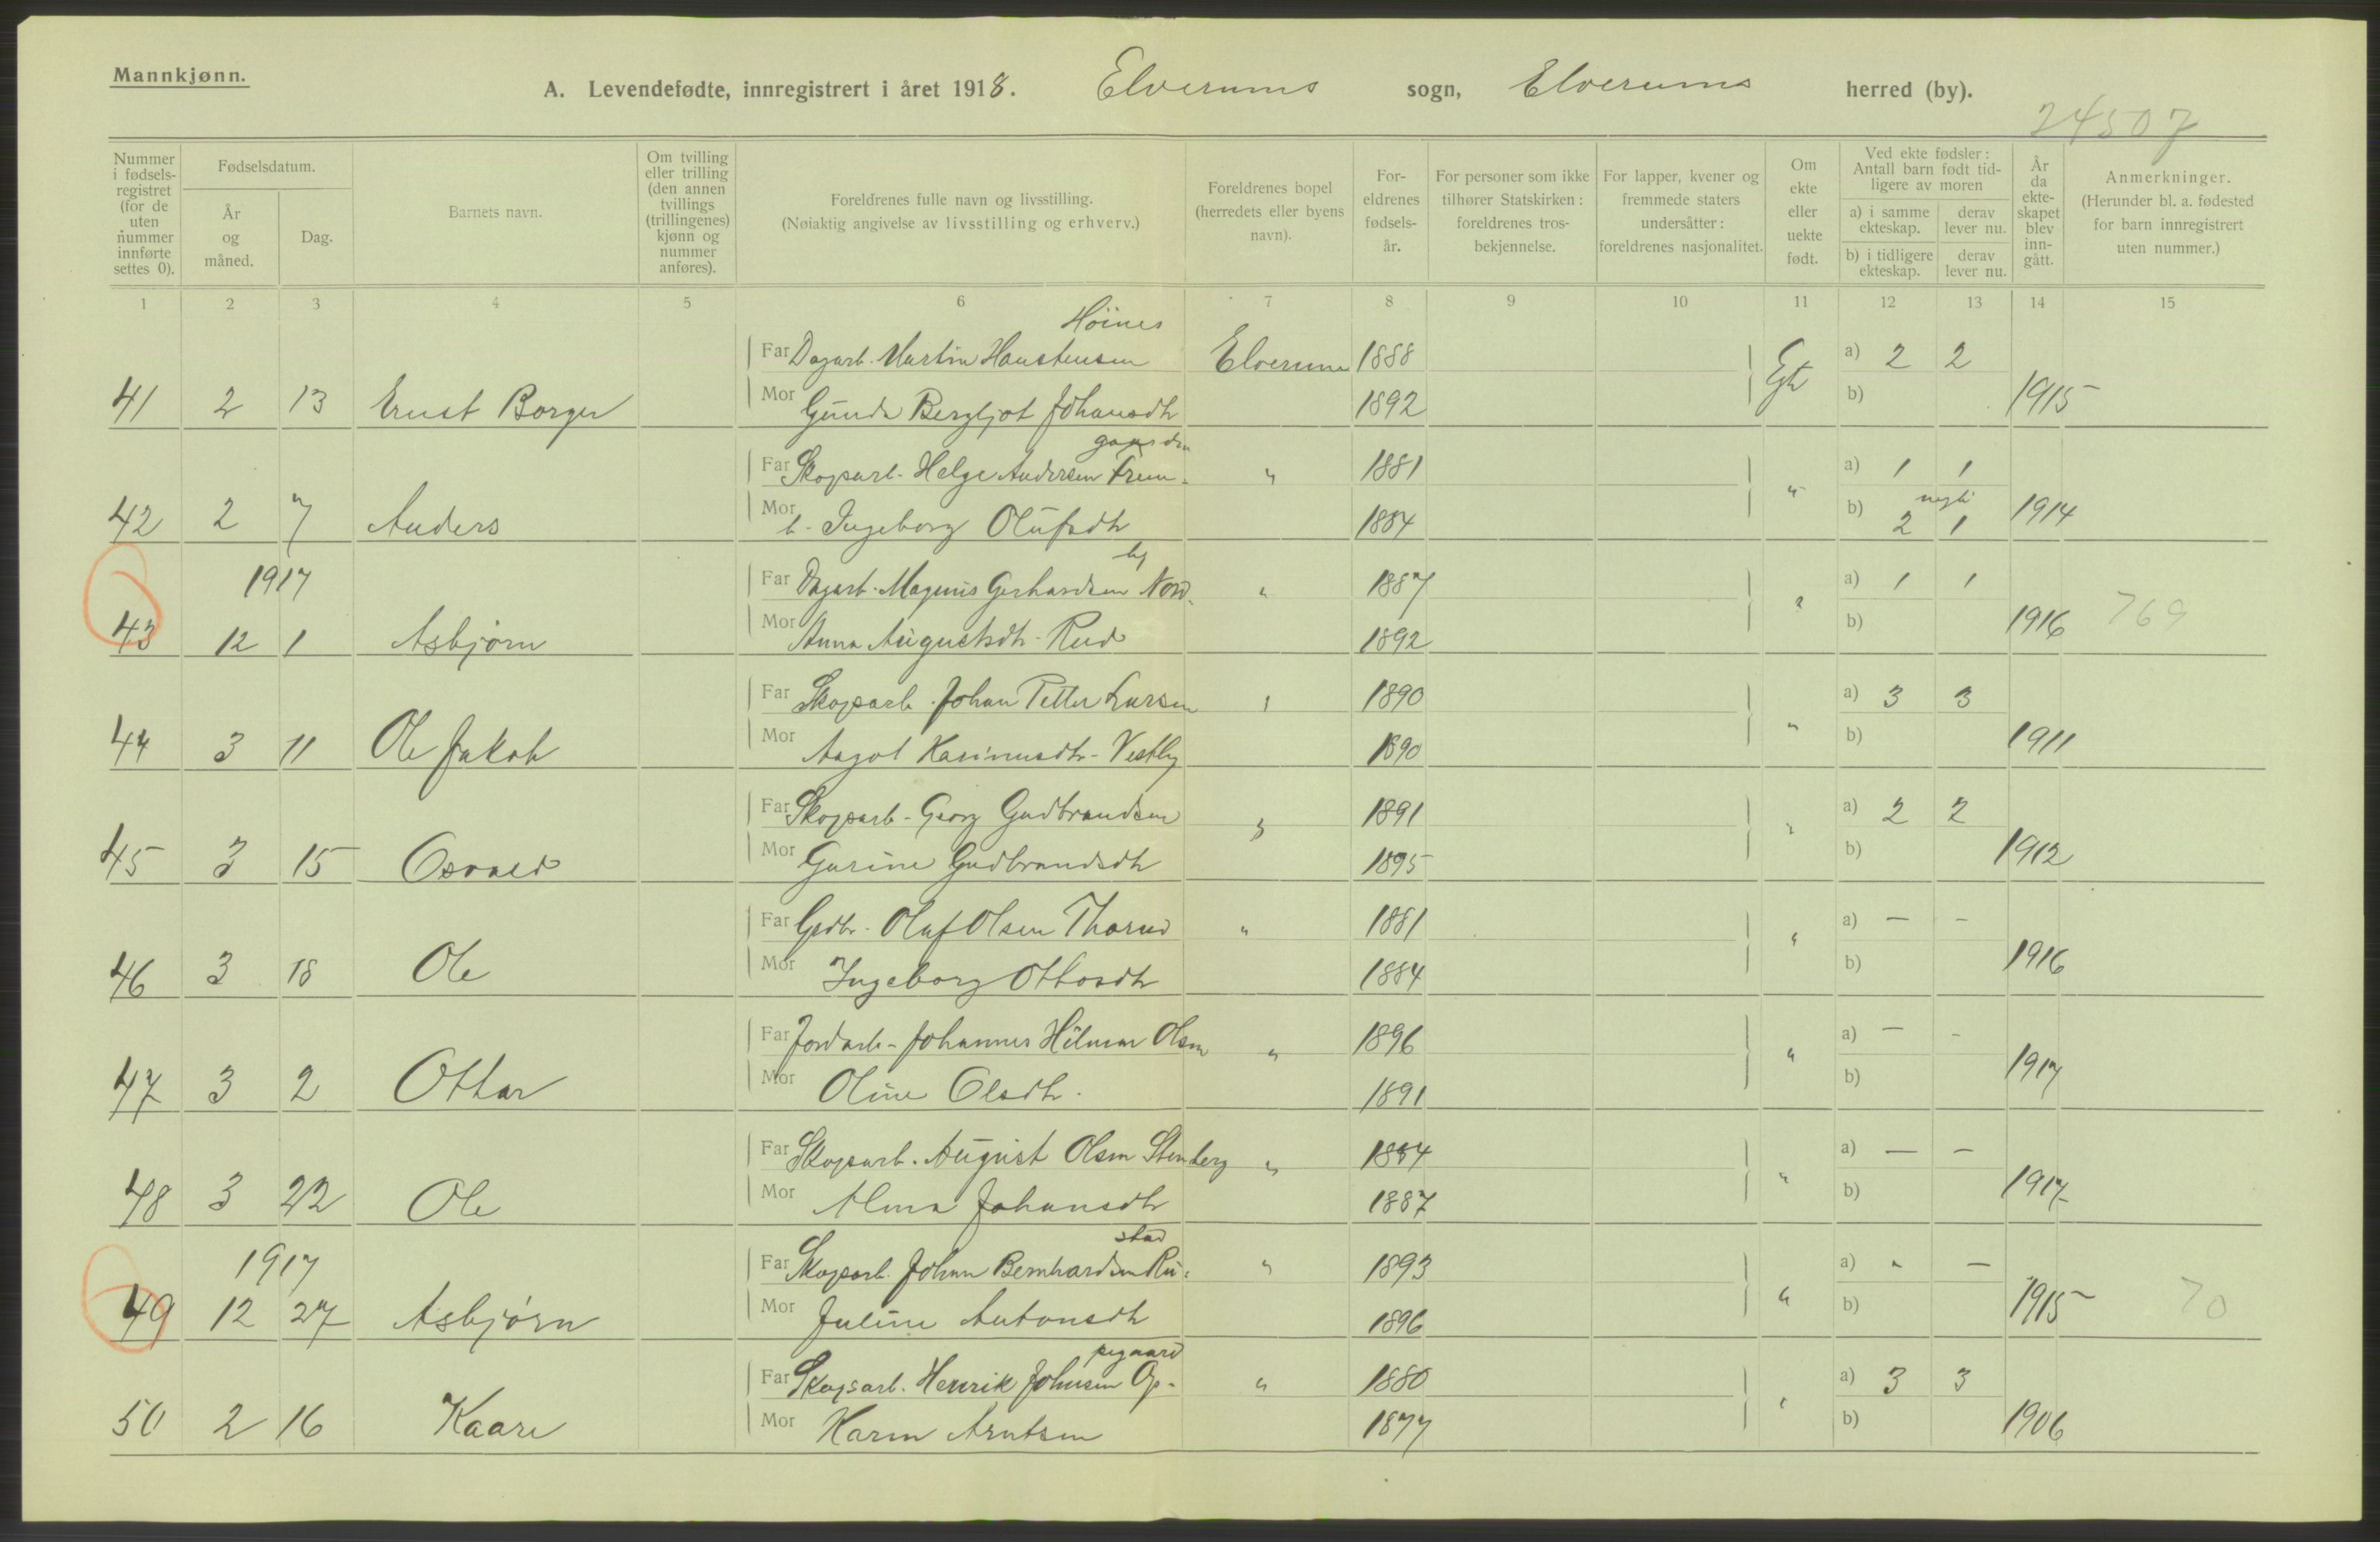 Mannkjønn.
A. Levendefødte, innregistrert i året 1918. Elverums sogn, Elverums herred (by).
24507
Nummer i fødselsregistret (for de uten nummer innførte settes 0).
Fødselsdatum.
År og måned.
Dag.
Barnets navn.
Om tvilling eller trilling (den annen tvillings (trillingenes) kjønn og nummer anføres).
Foreldrenes fulle navn og livsstilling.
(Nøiaktig angivelse av livsstilling og erhverv.)
Foreldrenes bopel (herredets eller byens navn).
For-eldrenes fødsels-år.
For personer som ikke tilhører Statskirken: foreldrenes tros-bekjennelse.
For lapper, kvener og fremmede staters undersåtter: foreldrenes nasjonalitet.
Om ekte eller uekte født.
Ved ekte fødsler: Antall barn født tid-ligere av moren
a) i samme ekteskap. derav lever nu.
b) i tidligere ekteskap. derav lever nu.
År da ekte-skapet blev inn-gått.
Anmerkninger.
(Herunder bl. a. fødested for barn innregistrert uten nummer.)
1 2 3 4 5 6 7 8 9 10 11 12 13 14 15
Høines
Far Dagarb. Martin Haustensen Elverum 1888 Egte a) 2 2
41 2 13 Ernst Borger Mor Gunda Bergljot Johansdtr 1892 b) 1915
gaarden
Far Skogsarb. Helge Andersen Grun- " 1881 " a) 1 1
42 2 7 Anders Mor h. Ingeborg Olufsdtr 1884 b) 2 1 1914
by
1917 Far Dagarb. Magnus Gerhardsen Nord- " 1887 " a) 1 1
43 12 1 Asbjørn Mor Anna Augustsdtr Rud 1892 b) 1916 769
Far Skogsarb. Johan Petter Larsen " 1890 a) 3 3
44 3 11 Ole Jakob Mor Aagot Kasinusdtr - Vestby 1890 " b) 1911
Far Skogsarb - Georg Gudbrandsen " 1891 " a) 2 2
45 3 15 Osvald Mor Gurine Gudbrandsdtr 1895 b) 1912
Far Grdbr. Oluf Olsen Thorud " 1881 " a) — -
46 3 18 Ole Mor Ingeborg Ottosdtr 1884 b) 1916
Far Jordarb - Johannes Hilmar Olsen " 1896 " a) — -
47 3 2 Ottar Mor Oline Olsdtr. 1891 b) 1917
Far Skogsarb. August Olsen Stenberg " 1884 a) — —
48 3 22 Ole Mor Alma Johansdtr 1887 " b) 1917
stad
1917 Far Skogsarb. Johan Bernhardsen Ru- " 1893 a) " —
49 12 27 Asbjørn Mor Juline Antonsdtr 1896 " b) 1915 70
pegaard
Far Skogsarb. Henrik Johnsen Op- " 1880 a) 3 3
50 2 16 Kaare Mor Karen Arntsen 1877 " b) 1906